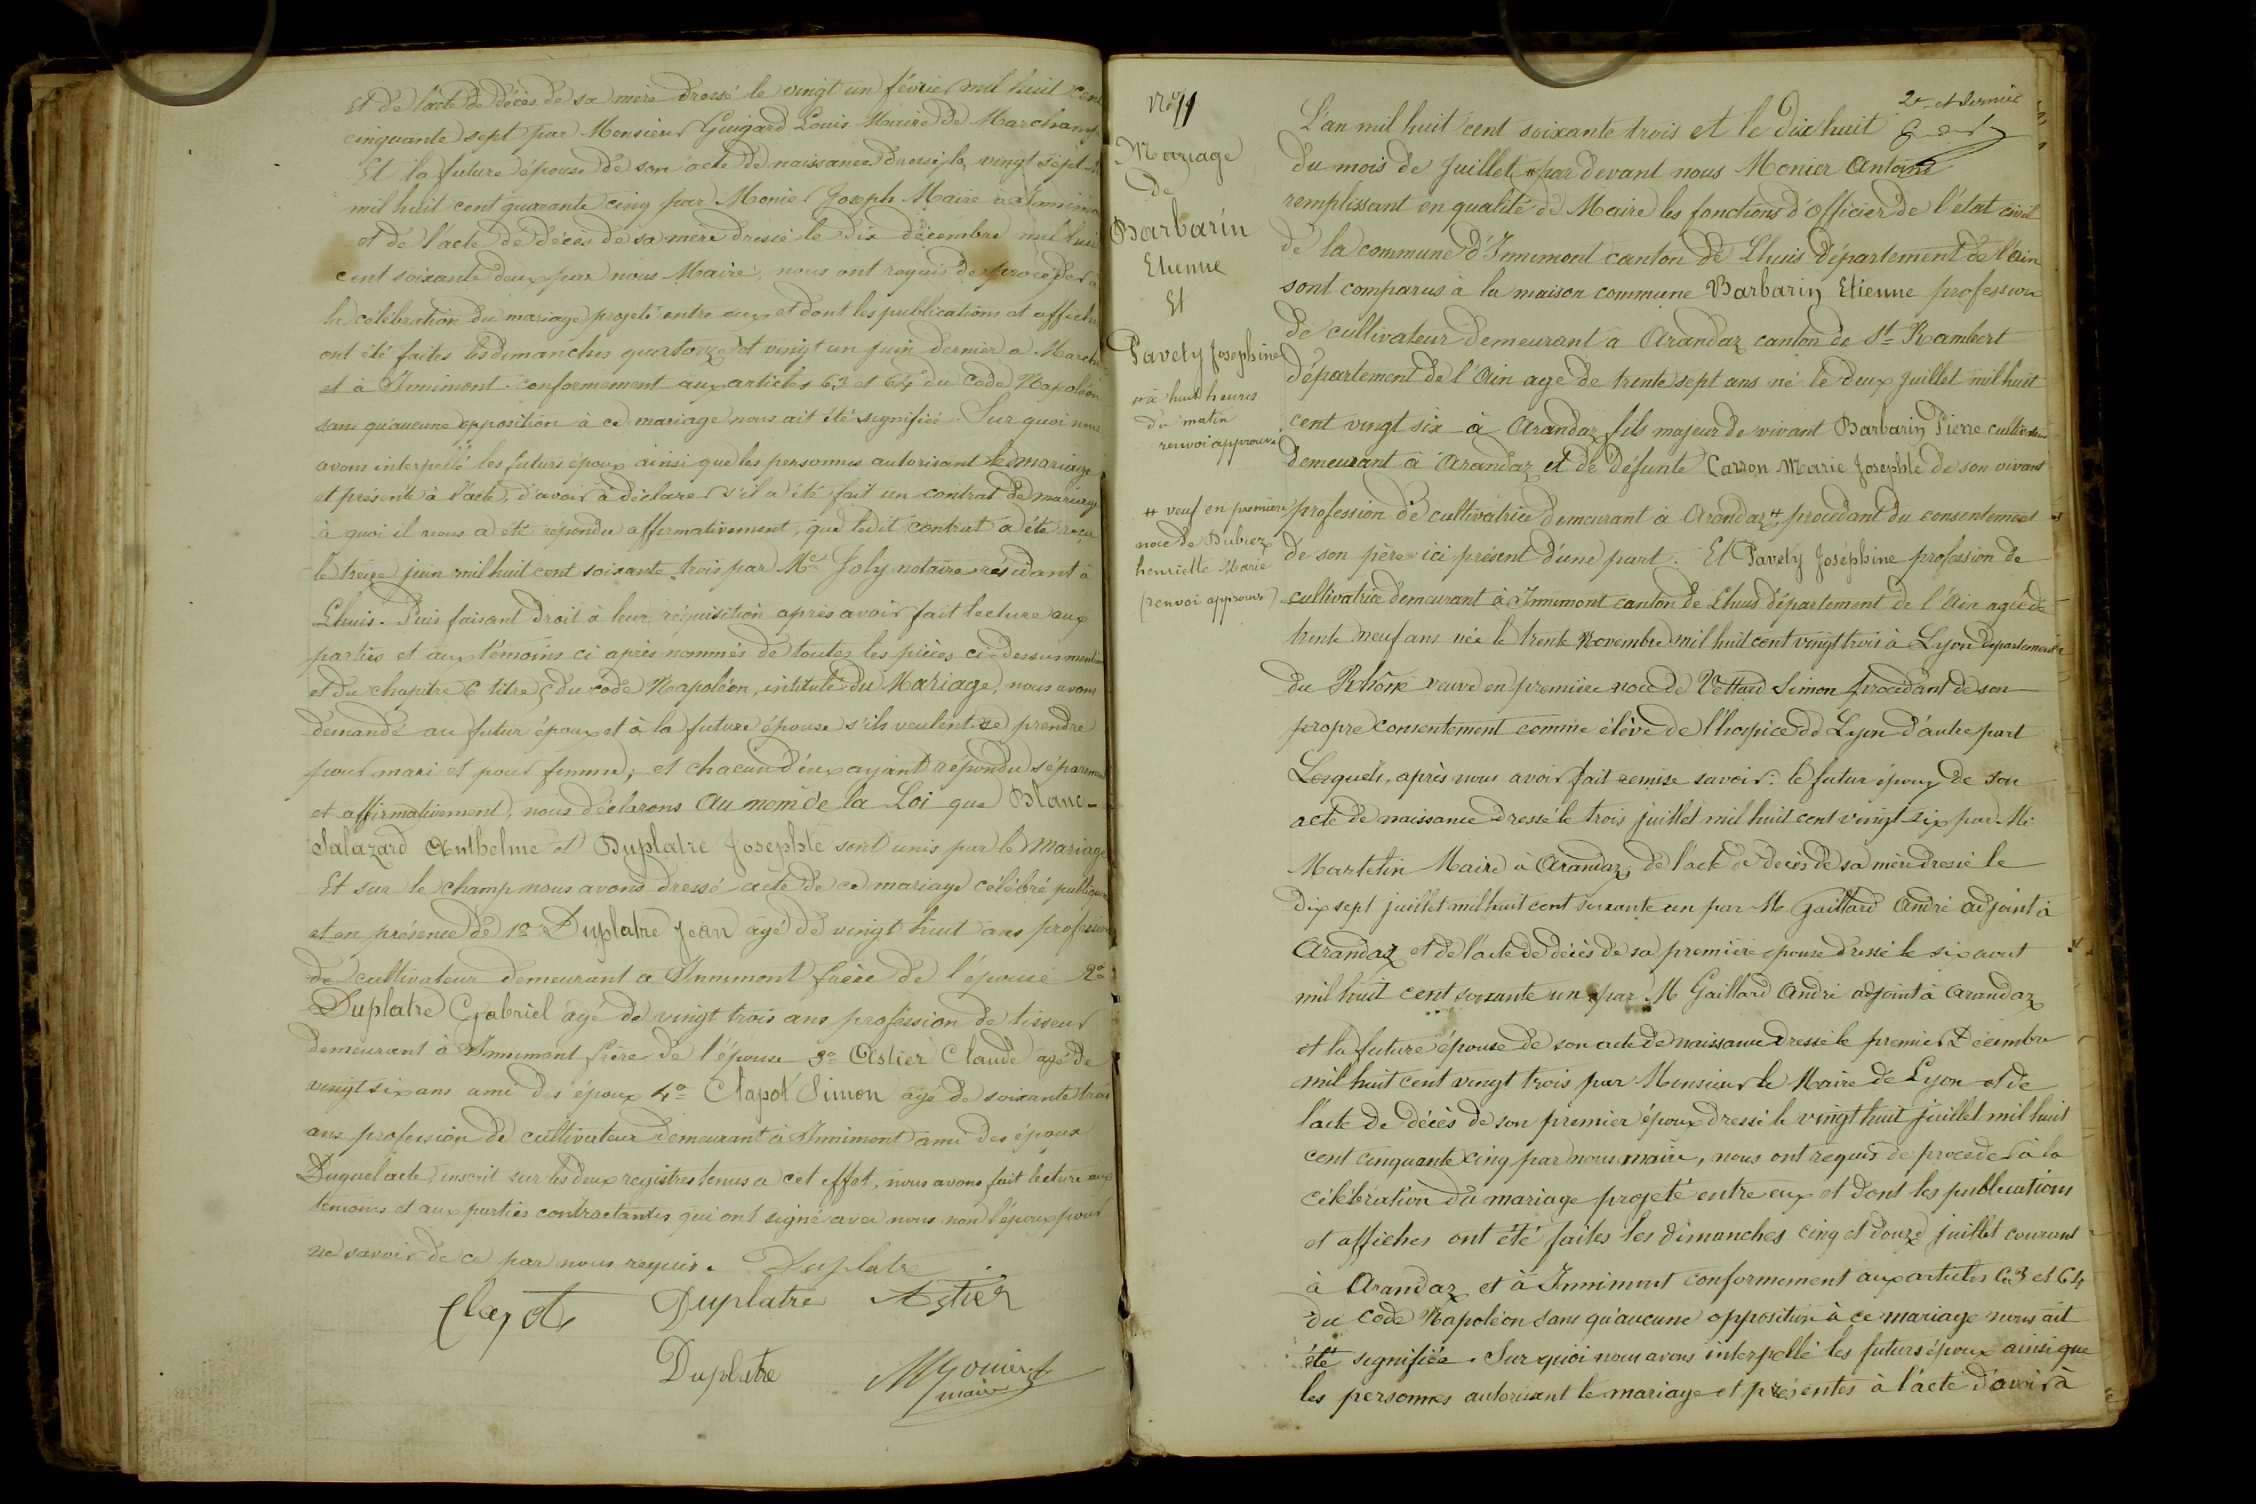 Et de l'acte de décès de sa mère dressé le vingt un février mil huit cent
cinquante sept par Monsieur Guigard Louis Maire de Marchamp
Et la future épouse de son acte de naissance dressé le vingt sept
mil huit cent quarante cinq par Monier Joseph Maire à Innimont
et de l'acte de décès de sa mère dressé le dix décembre mil huit
cent soixante deux par nous Maire, nous ont requis de procéder à
la célébration du mariage projeté entre eux et dont les publications et affiches
ont été faites les dimanches quatorze et vingt un juin dernier a March
et à Innimont conformement aux articles 63 et 64 du Code Napoléon
sans qu'aucune opposition à ce mariage nous ait été signifiée. Sur quoi nous
avons interpellé les futurs époux ainsi que les personnes autorisant le mariage
et présente à l'acte, d'avoir à déclarer s'il a été fait un contrat de mariage
à quoi il nous a été répondu affirmativement, que ledit contrat a été reçu
le treize juin mil huit cent soixante trois par Me Joly notaire residant à
Lhuis. Puis faisant droit à leur réquisition après avoir fait lecture aux
parties et aux témoins ci après nommés de toutes les pièces ci-dessus mention
et du chapitre 6 titre 5 du code Napoléon, intitulé du Mariage, nous avons
demandé au futur époux et à la future épouse s'ils veulent se prendre
pour mari et pour femme; et chacun d'eux ayant répondu séparement
et affirmativement, nous déclarons Au nom de la Loi que Blanc-
Salazard Anthelme et Duplatre Josephte sont unis par le Mariage
Et sur le champ nous avons dressé acte de ce mariage célébré publique
et en présence de 1o Duplatre Jean âgé de vingt huit ans profession
de cultivateur demeurant a Innimont frère de l'épouse 2o
Duplatre Gabriel âgé de vingt trois ans profession de tisseur
demeurant à Innimont frère de l'épouse 3o Astier Claude âgé de
vingt six ans ami des époux 4o Clapot Simon âgé de soixante trois
ans profession de cultivateur demeurant à Innimont ami des époux
Duquel acte, inscrit sur les deux registres tenus a cet effet, nous avons fait lecture aux
témoins et aux parties contractantes qui ont signé avec nous non l'époux pour
ne savoir de ce par nous requis. Duplatre
Clapot Duplatre Astier
Duplatre Monier
maire
No 11
Mariage
de
Barbarin
Etienne
Et
Pavety Josephine
à huit heures
du matin
renvoi approuvé
# veuf en première
noce de Dubiez
henriette Marie
(renvoi approuvé)
2e et dernier
L'an mil huit cent soixante trois et le dix huit
du mois de Juillet # par devant nous Monier Antoine
remplissant en qualité de Maire les fonctions d'Officier de l'état civil
de la commune d'Innimont canton de Lhuis département de l'Ain
sont comparus à la maison commune Barbarin Etienne profession
de cultivateur demeurant a Arandaz canton de St Rambert
département de l'Ain age de trente sept ans né le deux juillet mil huit
cent vingt six à Arandaz fils majeur de vivant Barbarin Pierre cultivateur
demeurant à Arandaz et de défunte Carron Marie Josephte de son vivant
profession de cultivatrice demeurant à Arandaz #, procédant du consentement
de son père ici présent d'une part. Et Pavety Joséphine profession de
cultivatrice demeurant à Innimont canton de Lhuis département de l'Ain agée de
trente neuf ans née le trente Novembre mil huit cent vingt trois à Lyon département
du Rhône veuve en première noce de Vettard Simon procédant de son
propre consentement comme élève de l'hospice de Lyon d'autre part
Lesquels, après nous avoir fait remise savoir: le futur époux de son
acte de naissance dressé le trois juillet mil huit cent vingt six par Mr
Martelin Maire à Arandaz, de l'acte de décès de sa mère dressé le
dix sept juillet mil huit cent soixante un par M Gaillard André adjoint à
Arandaz et de l'acte de décès de sa première épouse dressé le six aout
mil huit cent soixante un par M Gaillard André adjoint à Arandaz
et la future épouse de son acte de naissance dressé le premier Décembre
mil huit cent vingt trois par Monsieur le Maire de Lyon et de
l'acte de décès de son premier époux dressé le vingt huit juillet mil huit
cent cinquante cinq par nous maire, nous ont requis de procéder à la
célébration du mariage projeté entre eux et dont les publications
et affiches ont été faites les dimanches cinq et douze juillet courant
à Arandaz et à Innimont conformement aux articles 63 et 64
du Code Napoléon sans qu'aucune opposition à ce mariage nous ait
été signifiée. Sur quoi nous avons interpellé les futurs époux ainsi que
les personnes autorisant le mariage et présentes à l'acte d'avoir à